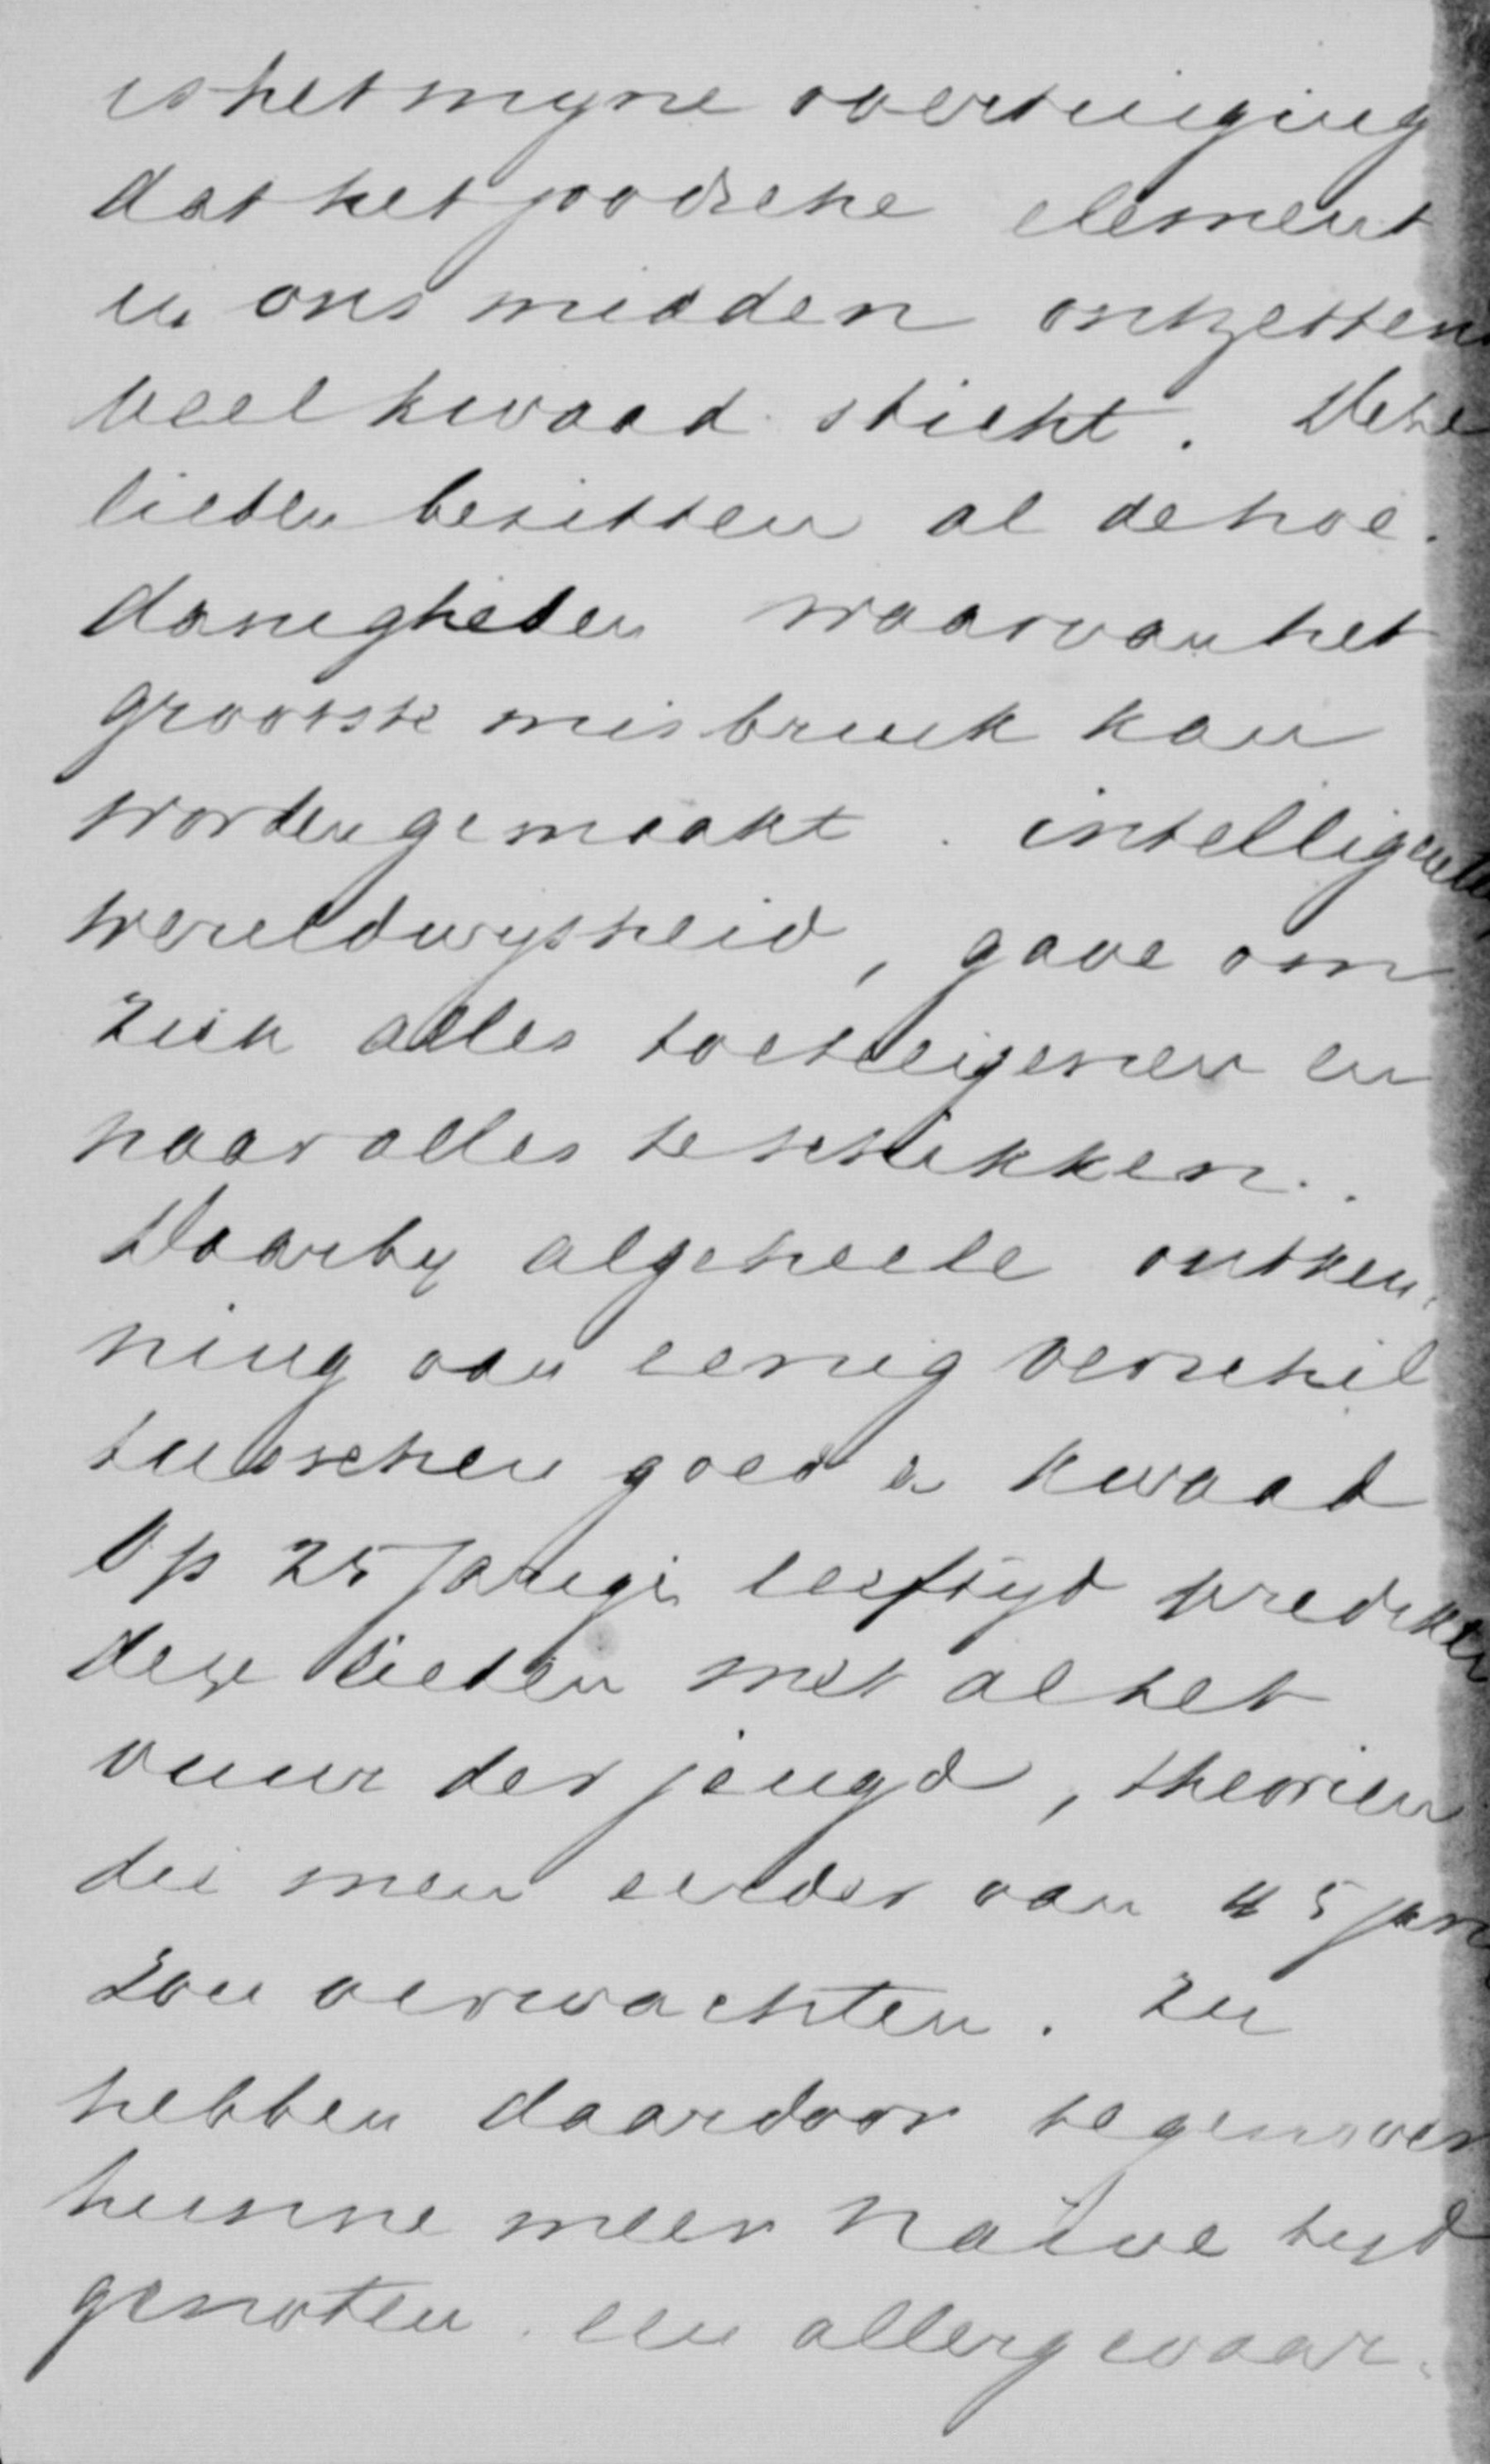 is het myne overtuiging
dat het joodsche element
in ons midden ontzettend
veel kwaad sticht. Deze
lieden bezitten al de hoe-
danigheden waarvan het
grootste misbruik kan
worden gemaakt. intelligentie
wereldwysheid, gave om
zich alles toeteeigenen en
naar alles te schikken.
Daarby algeheele ontken-
ning van eenig verschil
tusschen goed en kwaad
Op 25 jarige leeftyd prediken
deze lieden met al het
vuur der jeugd, theorien
die men eerder van 45 jarige
zou verwachten. Zy
hebben daardoor tegenover
hunne meer naïve tyd
genoten een allergevaar-